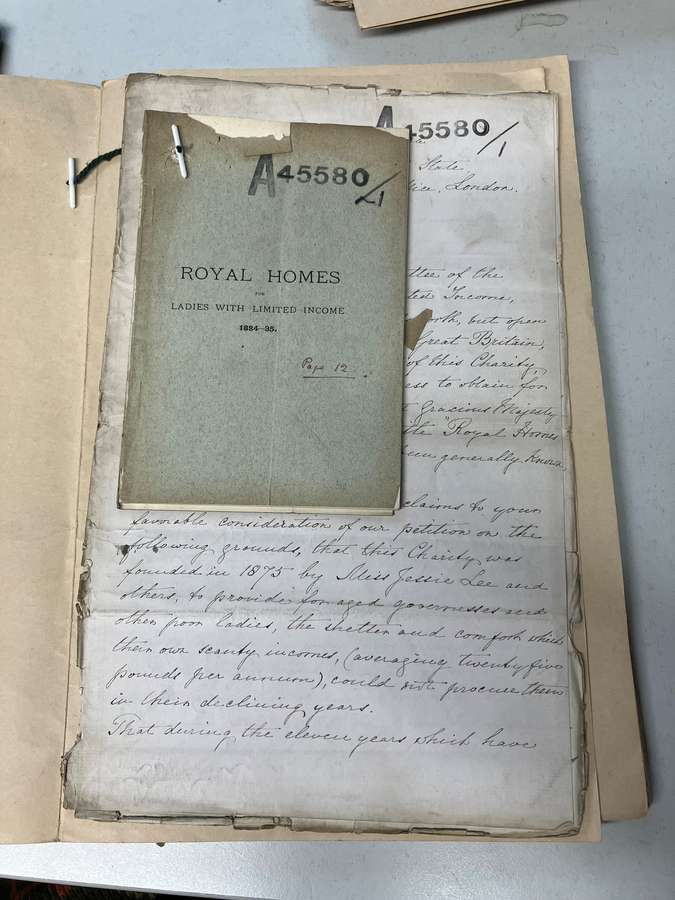 A45580/1
ROYAL HOMES
FOR
LADIES WITH LIMITED INCOME
1884-85.
Page 12
A45580/1
State
ice, London.
ttee of the
ted Income,
orth, but open
Great Britain,
of this Charity,
ess to obtain for
t Gracious Majesty
the "Royal Homes
been generally known,
claims to your
favorable consideration of our petition on the
following grounds, that this Charity was
founded in 1875 by Miss Jessie Lee and
others, to provide for aged governesses and
other poor ladies, the shelter and comfort which
their own scanty incomes, (averaging twenty five
pounds per annum), could not procure them
in their declining years.
That during the eleven years which have